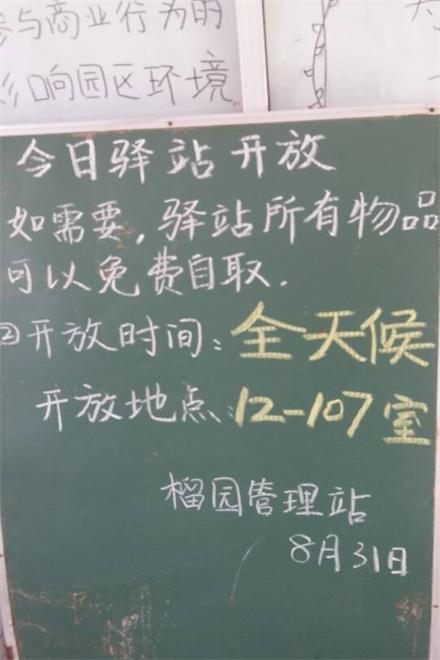 参与商业行为的
影响园区环境
今日驿站开放
如需要，驿站所有物品
可以免费自取.
②开放时间：全天候
开放地点：12-107室
榴园管理站
8月31日